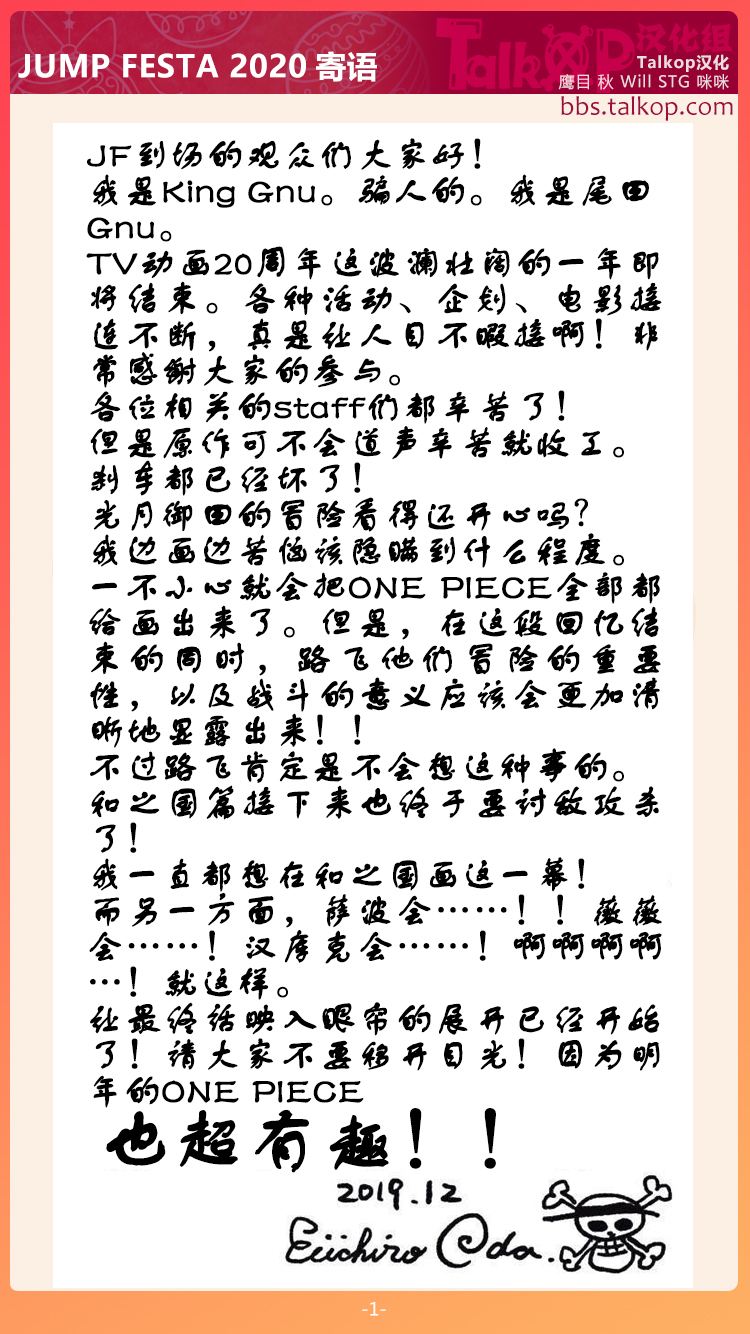 JUMP FESTA 2020 寄语
TalkOP汉化组
Talkop汉化
鹰目 秋 Will STG 咪咪
bbs.talkop.com
JF到场的观众们大家好！
我是King Gnu。骗人的。我是尾田
Gnu。
TV动画20周年这波澜壮阔的一年即
将结束。各种活动、企划、电影接
连不断，真是让人目不暇接啊！非
常感谢大家的参与。
各位相关的staff们都辛苦了！
但是原作可不会道声辛苦就收工。
刹车都已经坏了！
光月御田的冒险看得还开心吗？
我边画边苦恼该隐瞒到什么程度。
一不小心就会把ONE PIECE全部都
给画出来了。但是，在这段回忆结
束的同时，路飞他们冒险的重要
性，以及战斗的意义应该会更加清
晰地显露出来！！
不过路飞肯定是不会想这种事的。
和之国篇接下来也终于要讨敌攻杀
了！
我一直都想在和之国画这一幕！
而另一方面，萨波会……！！薇薇
会……！汉库克会……！啊啊啊啊
…！就这样。
让最终话映入眼帘的展开已经开始
了！请大家不要移开目光！因为明
年的ONE PIECE
也超有趣！！
2019.12
Eiichiro Oda.
-1-